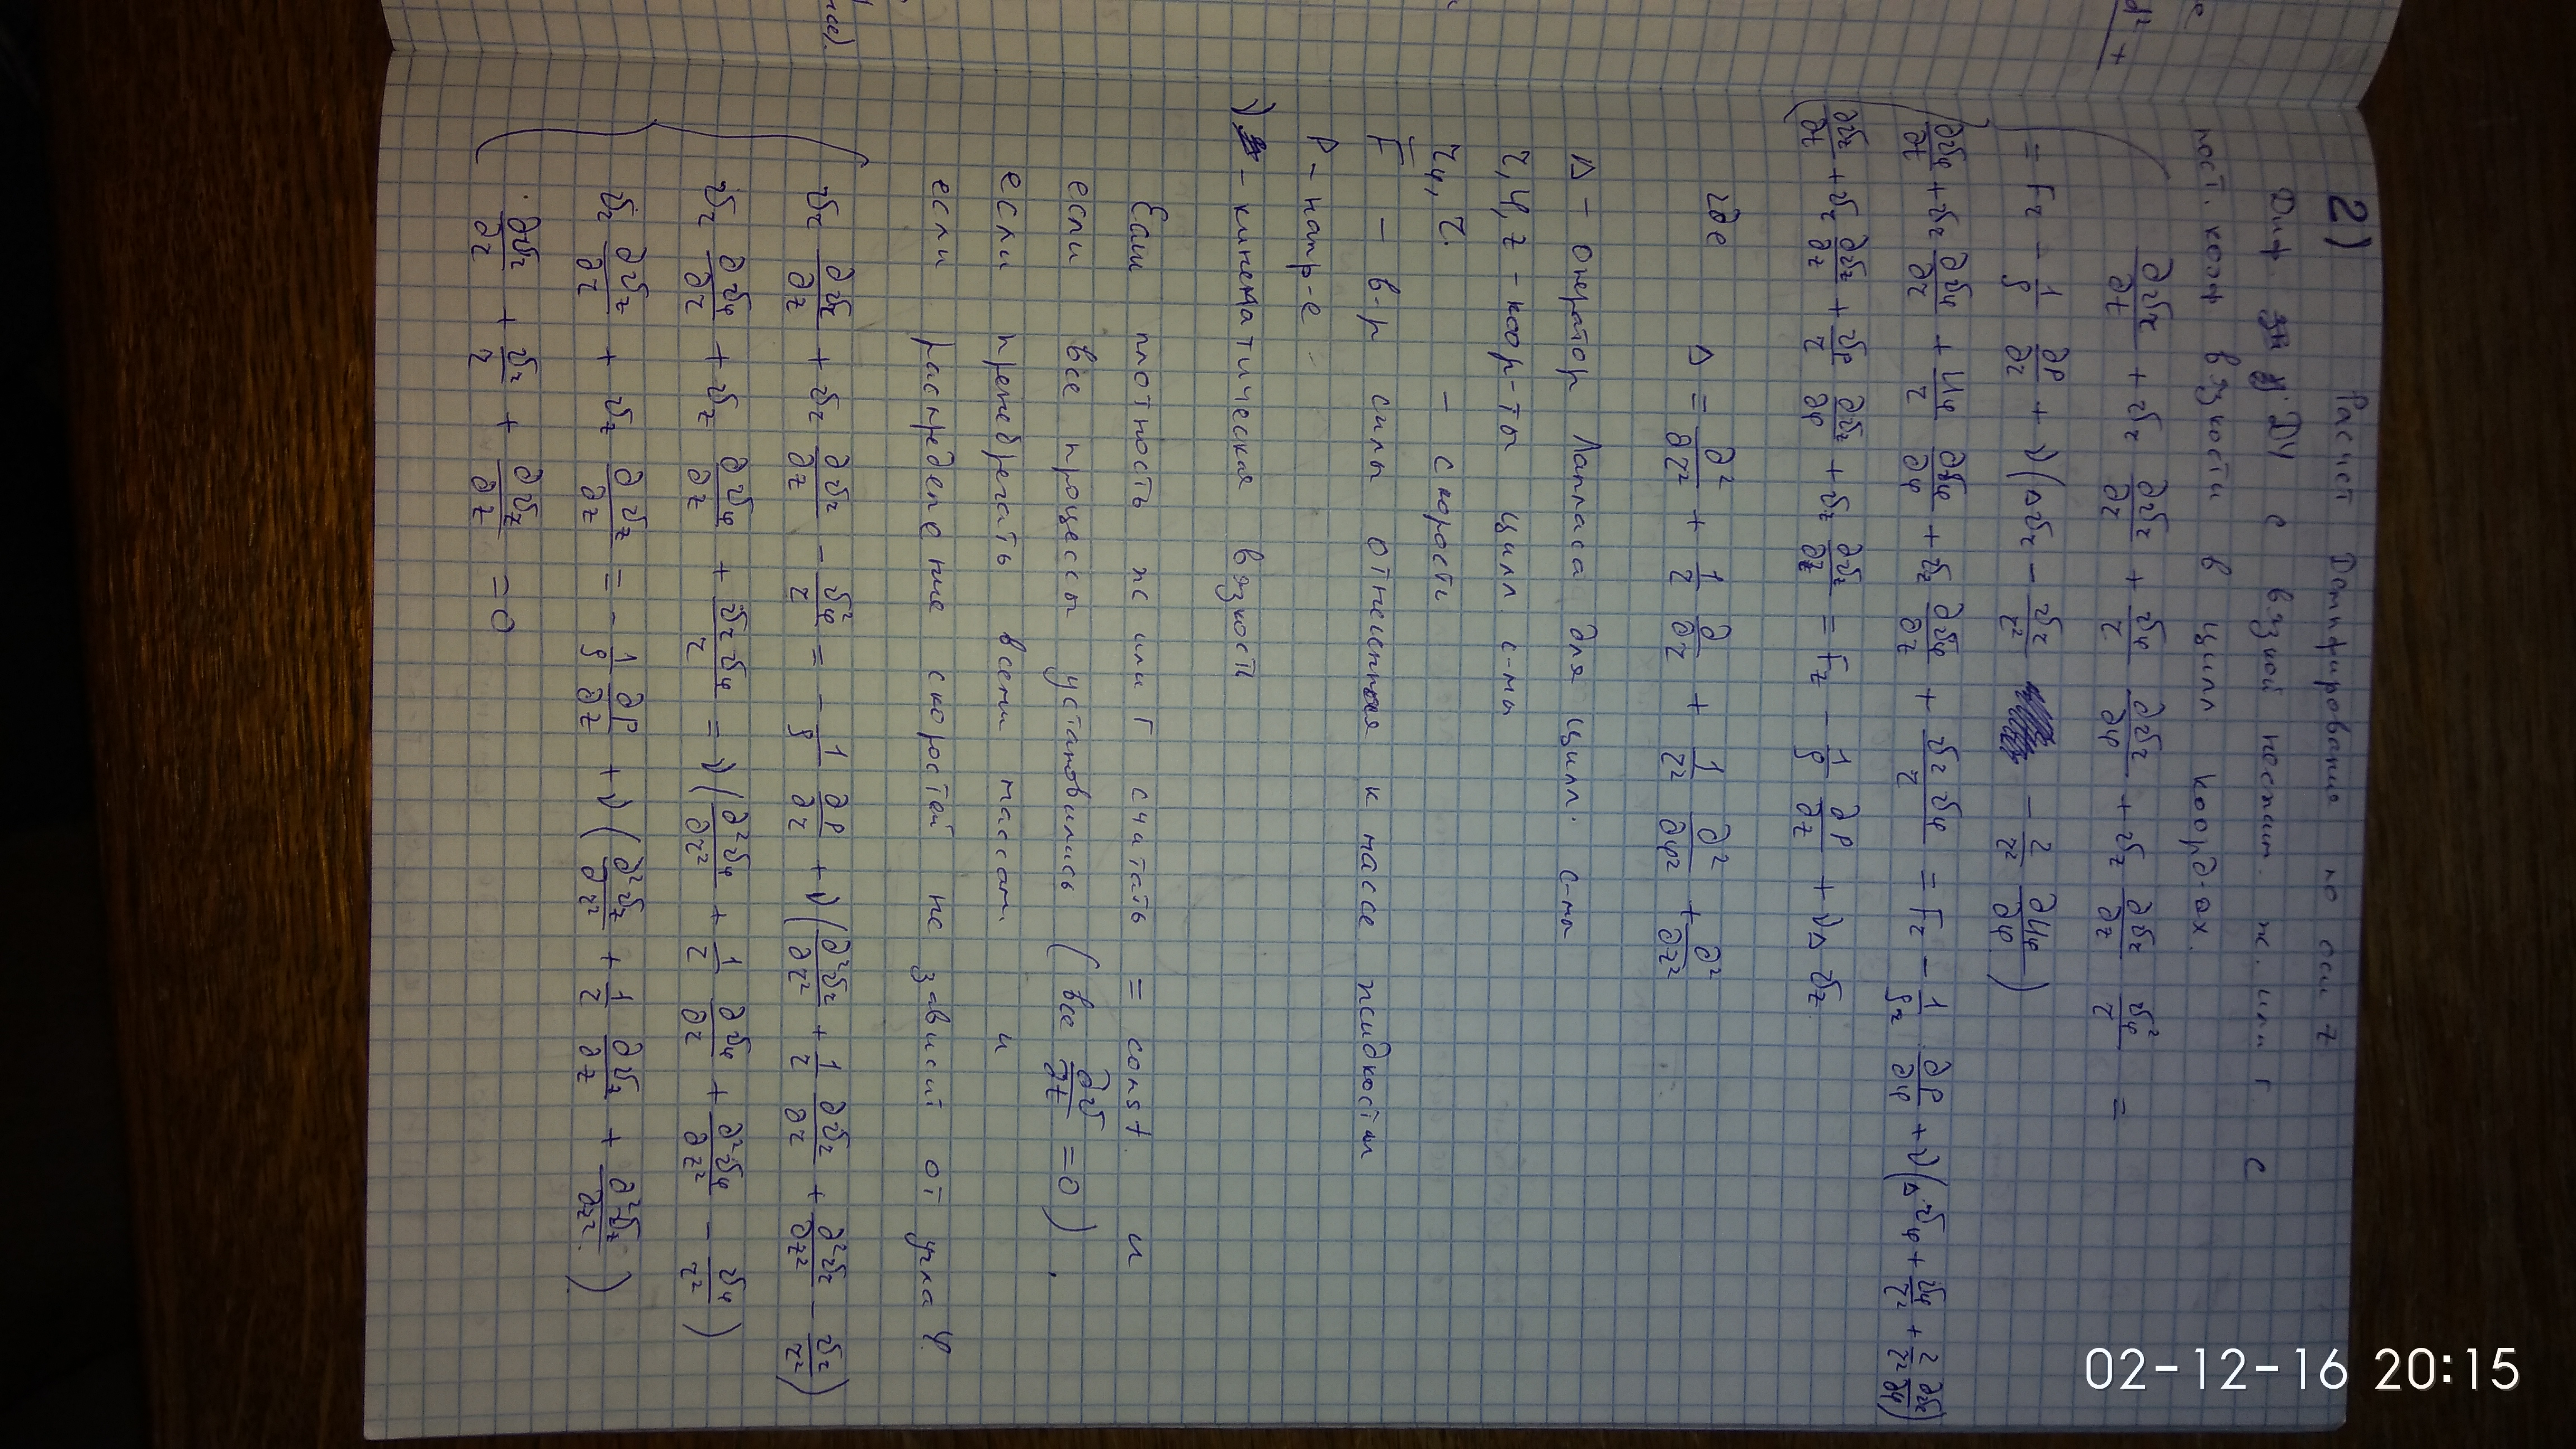 2) Расчет Демпфирование по оси z
Диф ДУ е вязкой несжим. ж. или г. с
пост. коэф вязкости в цилл коорд-ах.
∂υr/∂t + υr ∂υr/∂r + υφ/r ∂υr/∂φ + υz ∂υr/∂z υφ²/r =
= Fr - 1/ρ ∂P/∂r + ν(Δυr - υr/r² - 2/r² ∂υφ/∂φ)
∂υφ/∂t + υr ∂υφ/∂r + υφ/r ∂υφ/∂φ + υz ∂υφ/∂z + υr υφ/r = Fr - 1/ρr ∂P/∂φ + ν(Δυφ + υφ/r² + 2/r² ∂υr/∂φ)
∂υz/∂t + υr ∂υz/∂z + υφ/r ∂υz/∂φ + υz ∂υz/∂z = Fz - 1/ρ ∂P/∂z + νΔυz
где Δ = ∂²/∂r² + 1/r ∂/∂r + 1/r² ∂²/∂φ² + ∂²/∂z²
Δ - оператор Лапласа для цилл. с-мы
r, φ, z - коор-ты цилл. с-мы
- скорость
F - в-р силы отнесенная к массе жидкости
P - напр-е
ν - кинематическая вязкость
Если плотность ж или г считать = const и
если все процессы установились (все ∂υ/∂t = 0).
если пренебрегать всеми массам и
если распределение скоростей не зависит от угла φ
υr ∂υr/∂z + υr ∂υr/∂z - υφ²/r = - 1/ρ ∂P/∂r + ν(∂²υr/∂r² + 1/r ∂υr/∂r + ∂²υr/∂z² - υr/r²)
υr ∂υφ/∂r + υz ∂υφ/∂z + υr υφ/r = ν(∂²υφ/∂r² + 1/r ∂υφ/∂r + ∂²υφ/∂z² - υφ/r²)
υr ∂υz/∂r + υz ∂υz/∂z = - 1/ρ ∂P/∂z + ν(∂²υz/∂r² + 1/r ∂υz/∂z + ∂²υz/∂z²)
∂υr/∂r + υr/r + ∂υz/∂z = 0
02-12-16 20:15